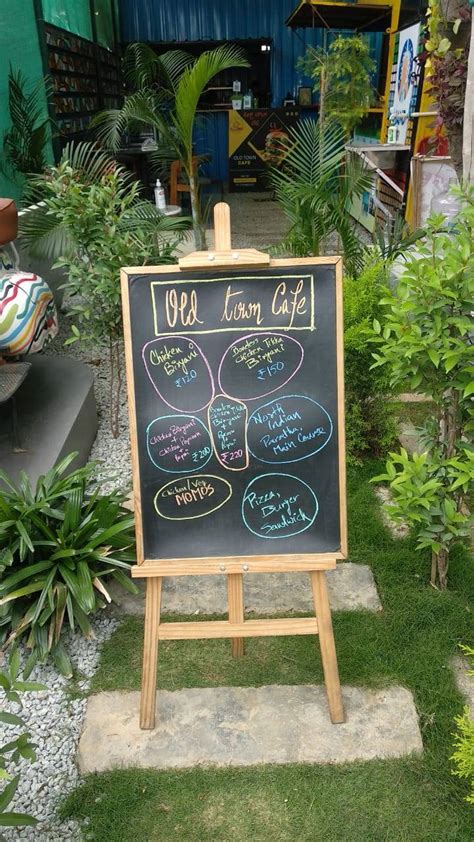 Old town Cafe
Chicken
Biryani
₹120
Boneless
Chicken Tikka
Biryani
₹150
Chicken Biryani
+
Chicken Popcorn
Pepsi
₹200
Boneless
Chicken Tikka
Biryani
+
Popcorn
Pepsi
₹220
North
Indian
Paratha,
Main Course
Chicken/Veg
MOMOS
Pizza,
Burger
Sandwich
OLD TOWN
CAFE